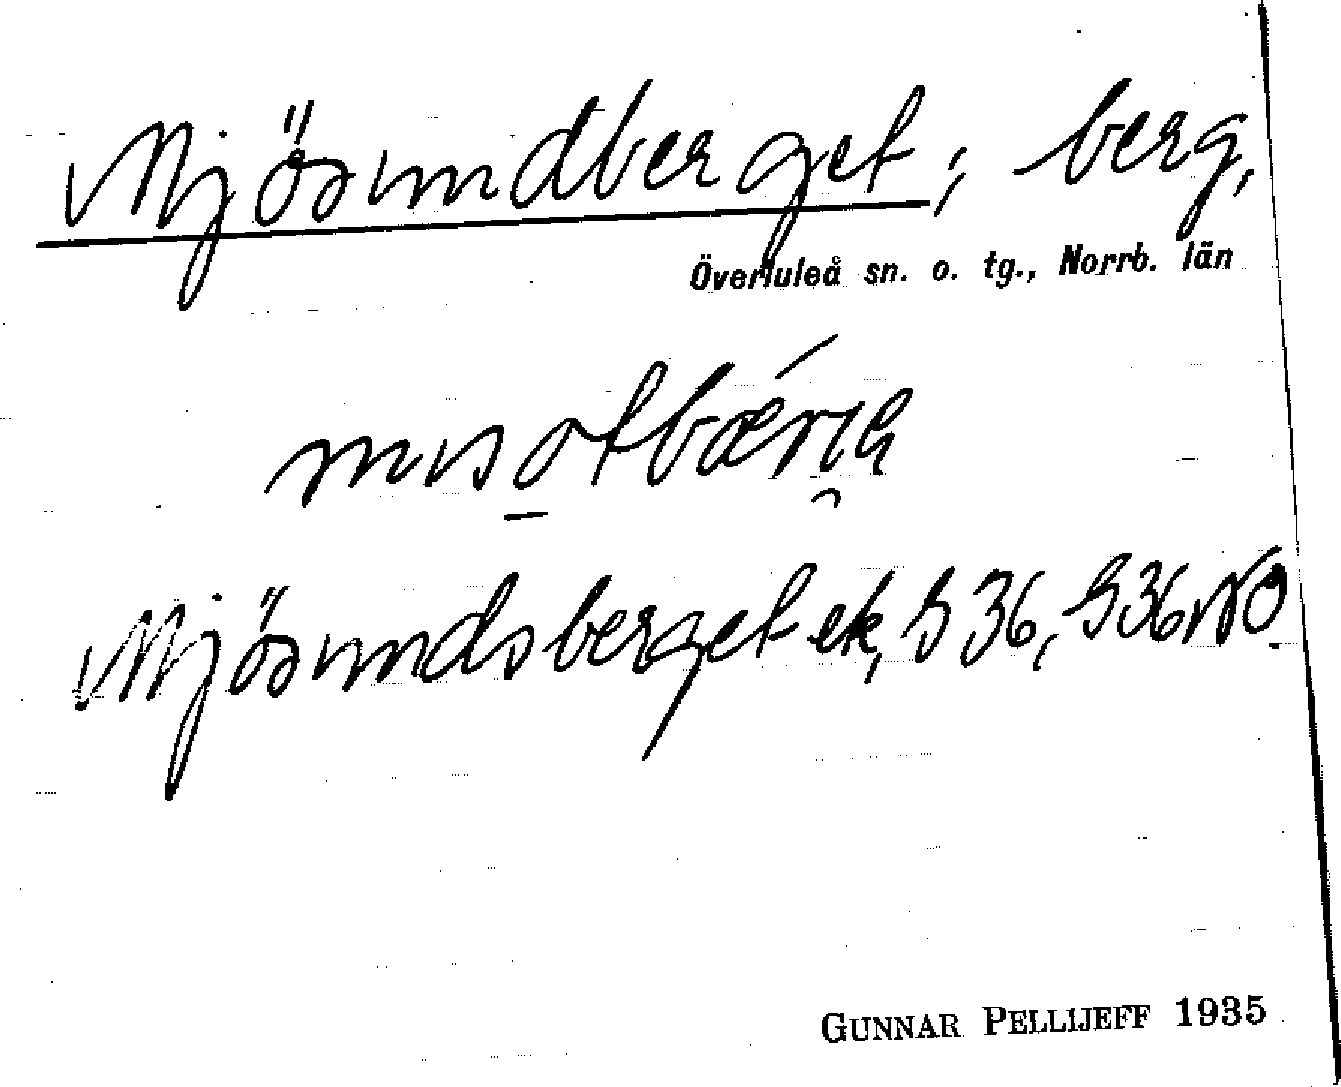 Mjösundberget; berg,
Överluleå sn. o. tg., Norrb. län
Mjösundsberget ek, S 36, S36NO
GUNNAR PELLIJEFF 1935